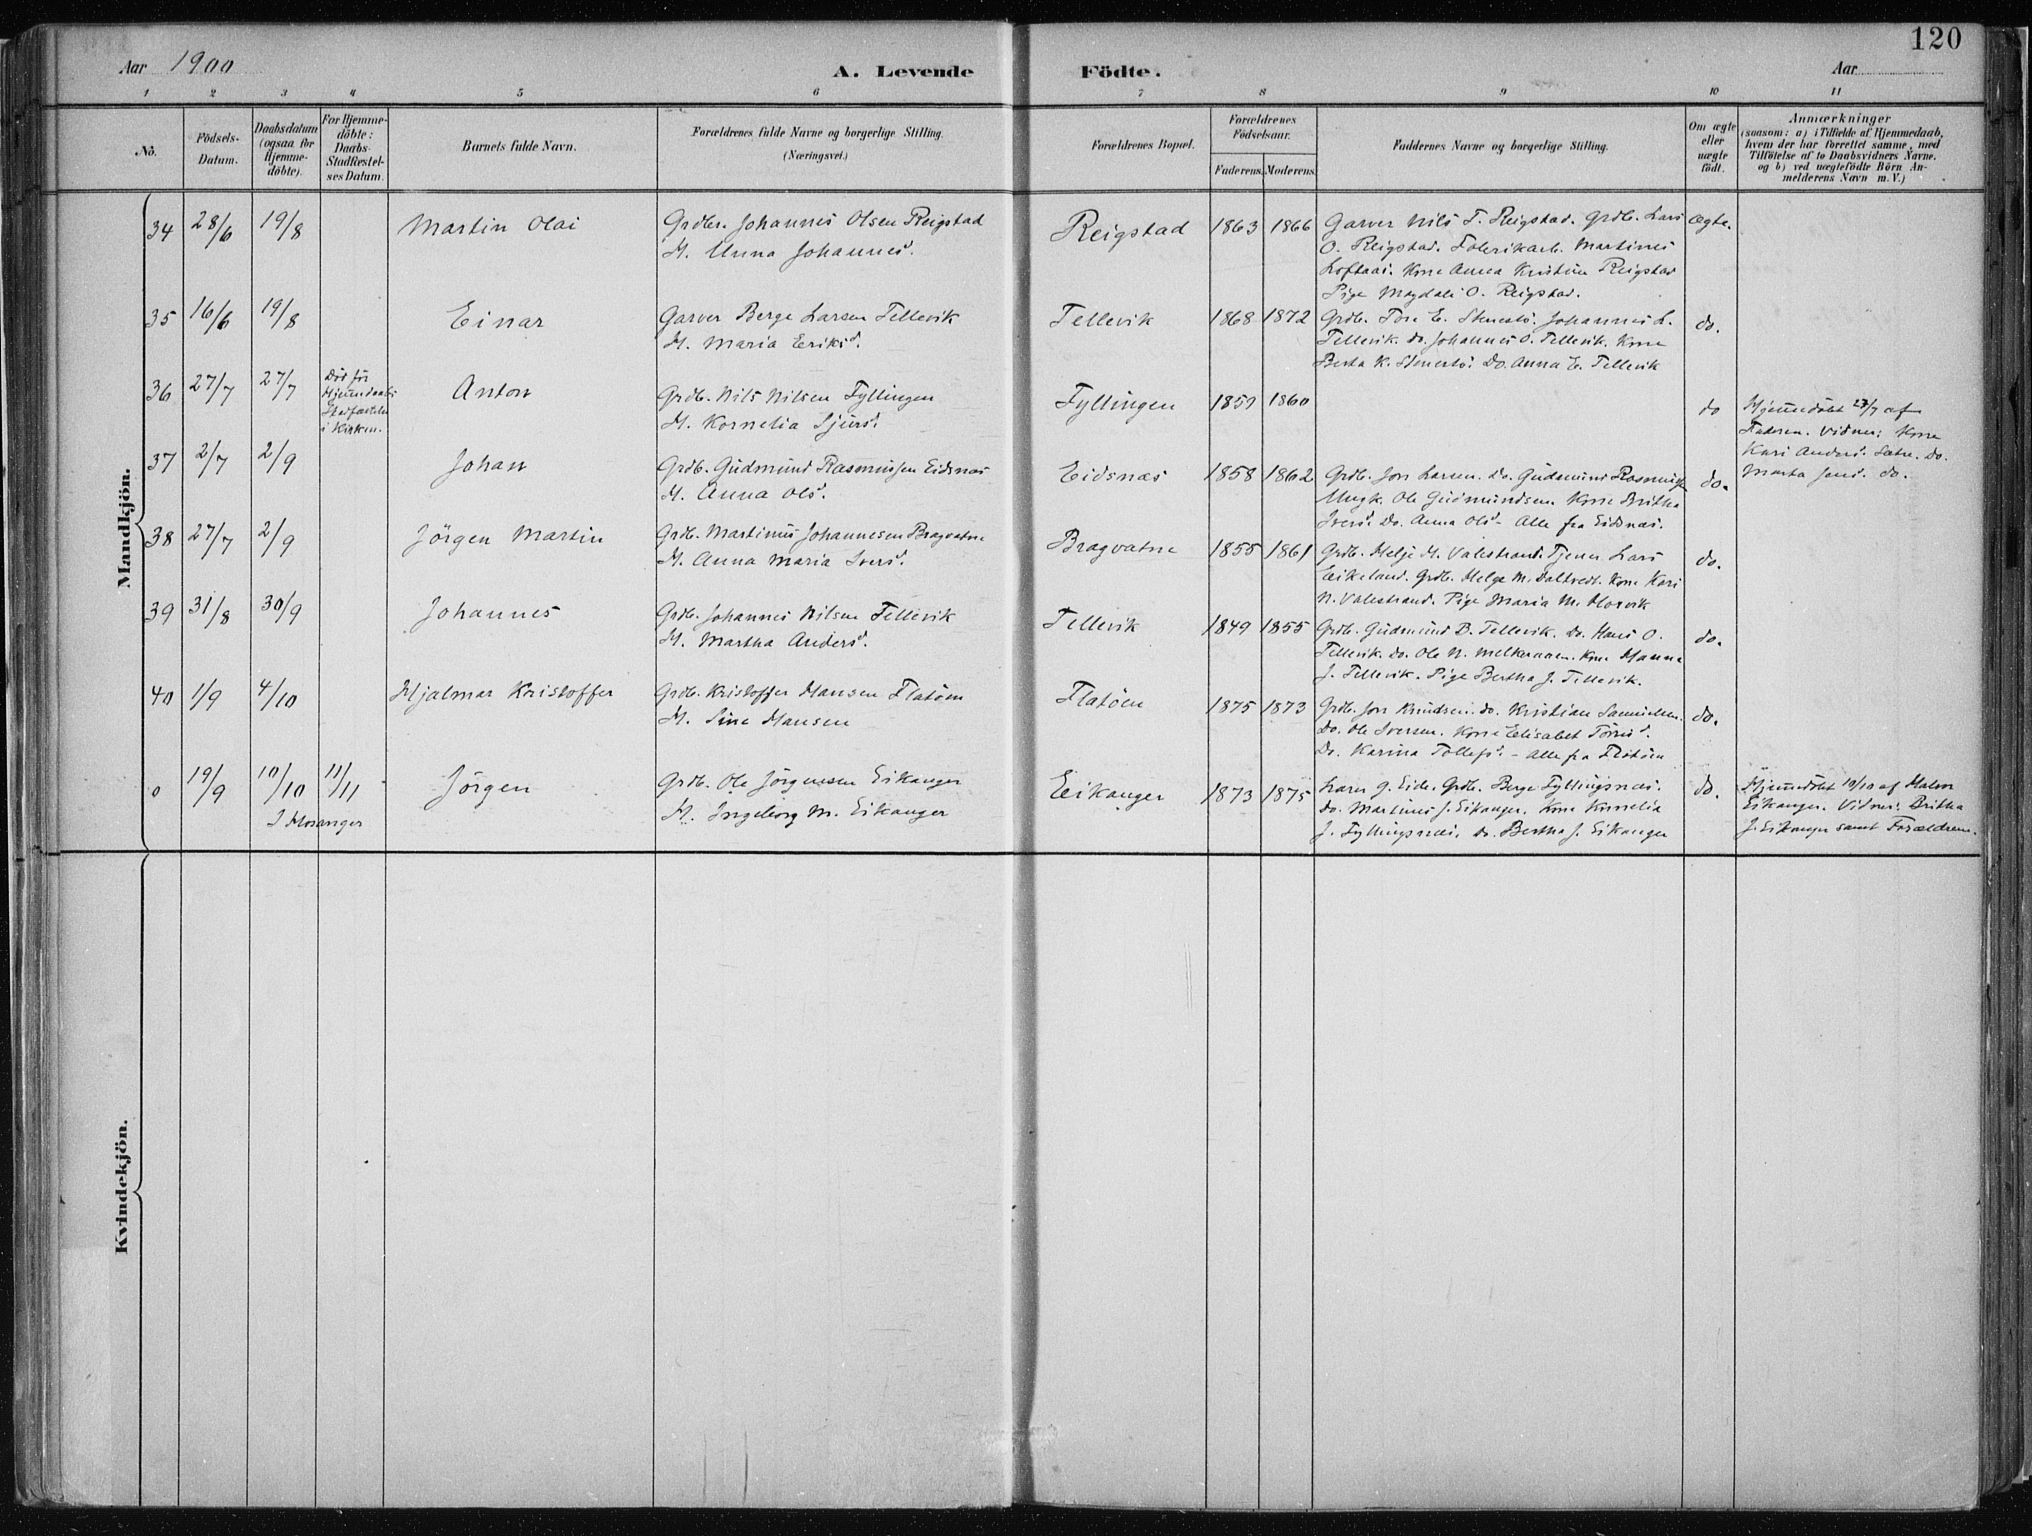 120
Aar 1900
A. Levende Födte.
Aar
1 2 3 4 5 6 7 8 9 10 11
Nô.
Födsels-Datum.
Daabsdatum (ogsaa for Hjemme-döbte).
For Hjemme-döbte: Daabs-Stadfæstel-ses Datum.
Barnets fulde Navn.
Forældrenes fulde Navne og borgerlige Stilling. (Næringsvei.)
Forældrenes Bopæl.
Forældrenes Födselsaar.
Faderens. Moderens.
Faddernes Navne og borgerlige Stilling.
Om ægte eller uægte födt.
Anmærkninger
(saasom: a) i Tilfælde af Hjemmedaab, hvem der har forrettet samme, med Tilföielse af to Daabsvidners Navne, og b) ved uægtefödte Börn An-melderens Navn m. V.)
Mandkjön.
34 28/6 19/8 Martin Olai
Grdbr. Johannes Olsen Reigstad
H. Anna Johannesd.
Reigstad 1863 1866
Garver Nils T. Reigstad. Grdb. Lars
O. Reigstad. Fabrikarb. Martinus
Loftaas. Kone Anna Kristine Reigstad
Pige Magdali O. Reigstad.
Ægte.
35 16/6 19/8 Einar
Garver Berge Larsen Tellevik
H. Maria Eriksd.
Tellevik 1868 1872
Grdb. Tore E. Stenestö. Johannes L.
Tellevik. do. Johannes O. Tellevik. Kone
Berta K. Stenestö. Do. Anna E. Tellevik
do.
36 27/7 27/7
Död för
Hjemmedaabs
Stadfæstelse
i Kirken.
Anton
Grdb. Nils Nilsen Fyllingen
H. Kornelia Sjursd.
Fyllingen 1859 1860
do
Hjemmedöbt 27/7 af
Faderen. Vidner: Kone
Kari Andersd. Sætre. do.
Marta Jensd. do.
37 2/7 2/9 Johan
Grdb. Gudmund Rasmussen Eidsnæs
H. Anna Olsd.
Eidsnæs 1858 1862
Grdb. Jon Larsen. Do. Gudmund Rasmuss.
Ungk. Ole Gudmundsen. Kone Britha
Iversd. Do. Anna Olsd - Alle fra Eidsnæs.
do.
38 27/7 2/9 Jörgen Martin
Grdb. Martinus Johannesen Bragvatne
H. Anna Maria Iversd.
Bragvatne 1855 1861
Grdb. Helje H. Valestrand. Tjener Lars
Eikeland. Grdb. Helge M. Daltvedt. Kone Kari
N. Valestrand. Pige Maria M. Horvik
do.
39 31/8 30/9 Johannes
Grdb. Johannes Nilsen Tellevik
H. Martha Andersd.
Tellevik 1849 1855
Grdb. Gudmund B. Tellevik. Do. Hans O.
Tellevik. do. Ole N. Melkeraaen. Kone Hanna
J. Tellevik. Pige Bertha J. Tellevik.
do.
40 1/9 4/10 Hjalmar Kristoffer
Grdb. Kristoffer Hansen Flatöen
H. Sine Hansen
Flatöen 1875 1873
Grdb. Jon Knudsen. do. Kristian Samuelsen.
Do. Ole Iversen. Kone Elisabet Törresd.
Do. Karina Tollefsd. - Alle fra Flatöen
do.
0 19/9 10/10 11/11
I Hosanger
Jörgen
Grdb. Ole Jörgensen Eikanger
H. Ingeborg M. Eikanger
Eikanger 1873 1875
Lærer J. Eide. Grdb. Berge Fyllingsnæs.
do. Martinus J. Eikanger. Kone Kornelia
J. Fyllingsnæs, do. Bertha J. Eikanger
do.
Hjemmedöbt 10/10 af
Eikanger. Vidner: Britha
J. Eikanger samt Forældrene.
Kvindekjön.